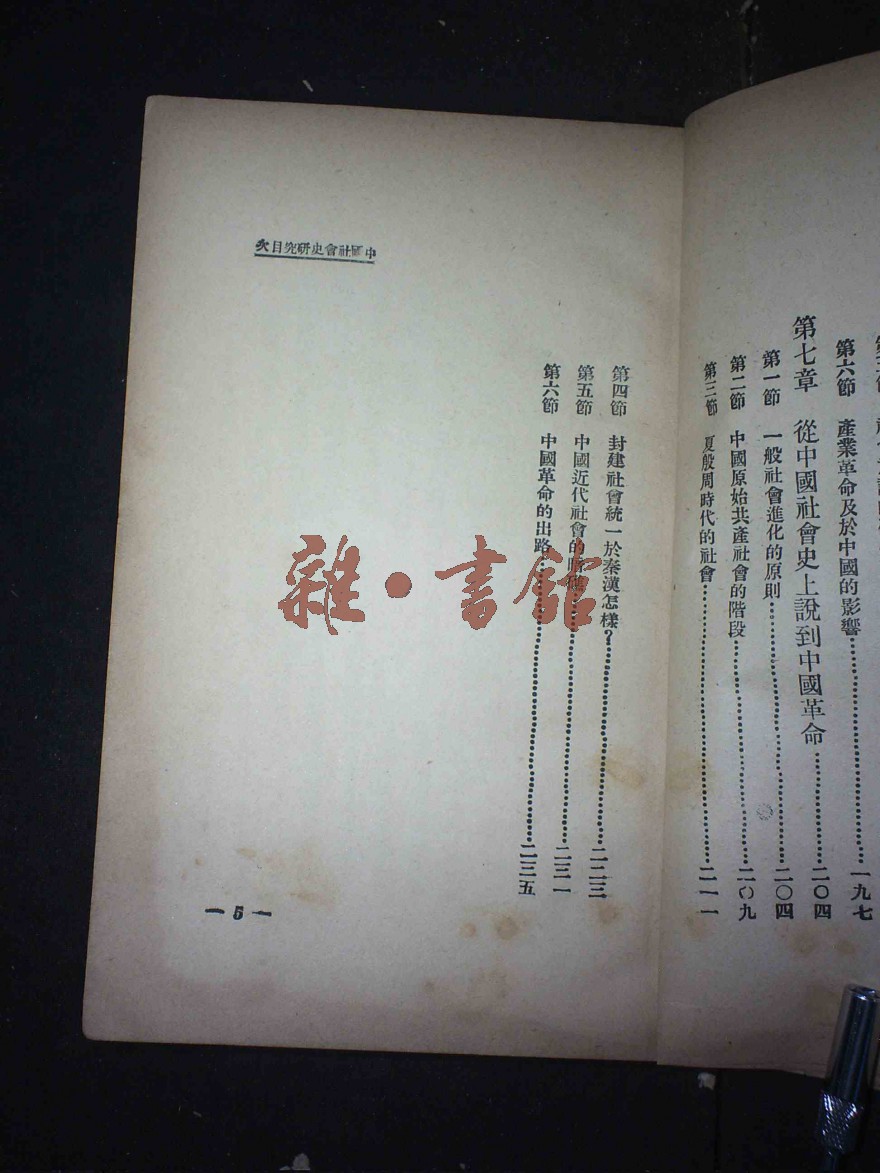 第六節　產業革命及於中國的影響……一九七
第七章　從中國社會史上說到中國革命……二〇四
第一節　一般社會進化的原則……二〇四
第二節　中國原始共產社會的階段……二〇九
第三節　夏殷周時代的社會……二一一
中國社會史研究目次
第四節　封建社會統一於秦漢怎樣？……二二三
第五節　中國近代社會的……二三一
第六節　中國革命的出路……二三五
— 5 —
雜·書館